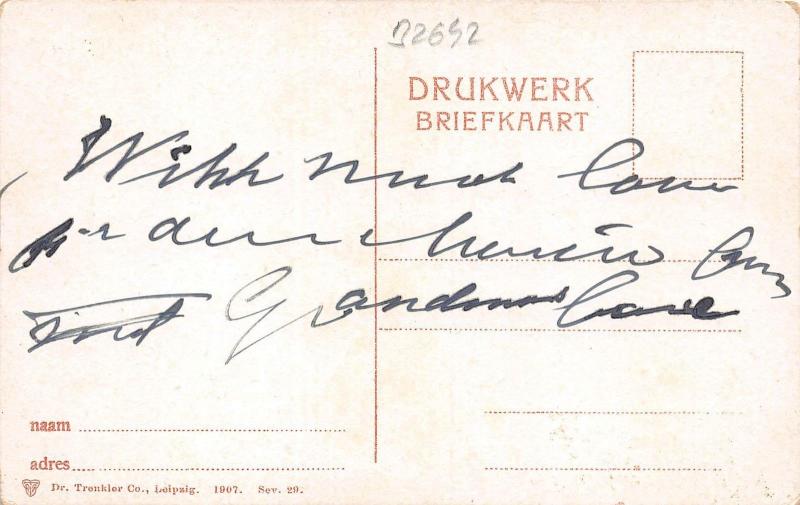 B2652
DRUKWERK
BRIEFKAART
With much love
dear from
Grandmas love
naam
adres
Dr. Trenkler Co., Leipzig. 1907. Sev. 29.